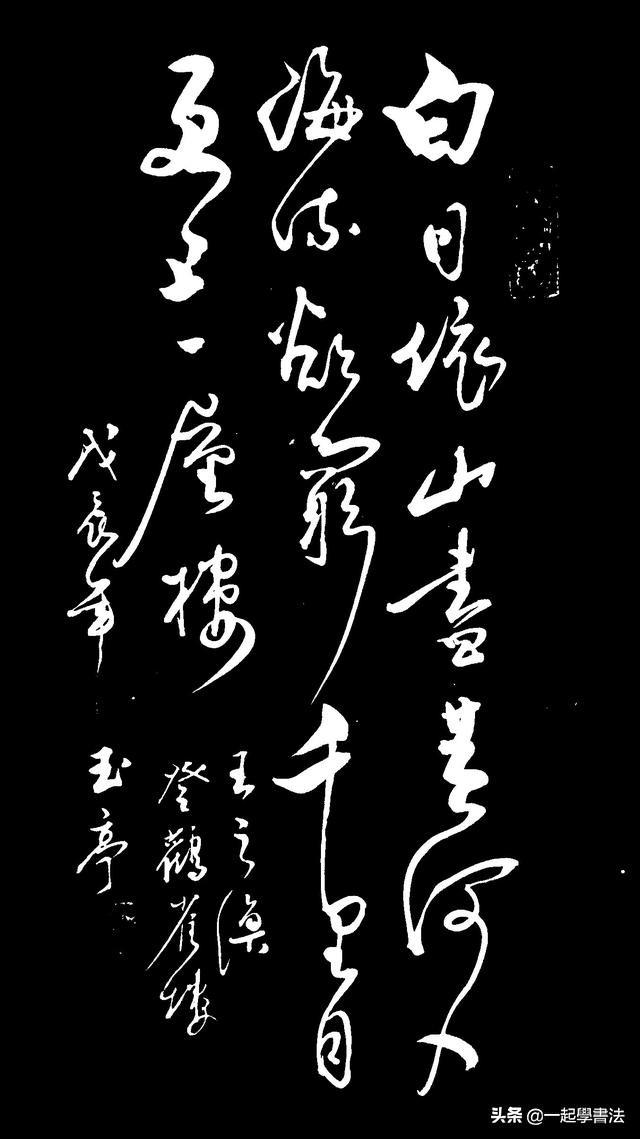 白日依山盡黃河入
海流欲窮千里目
更上一層樓
王之渙
登鸛雀樓
戊辰年 玉亭
头条 @一起學書法